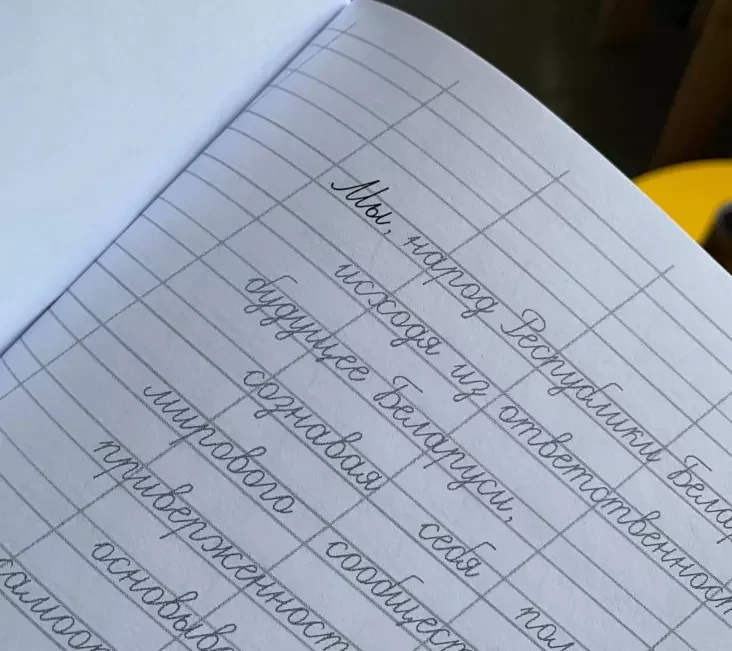 Мы, народ Республики Бела
исходя из ответственност
будущее Беларуси,
сознавая себя пол
мирового сообщест
приверженност
основыва
самооп